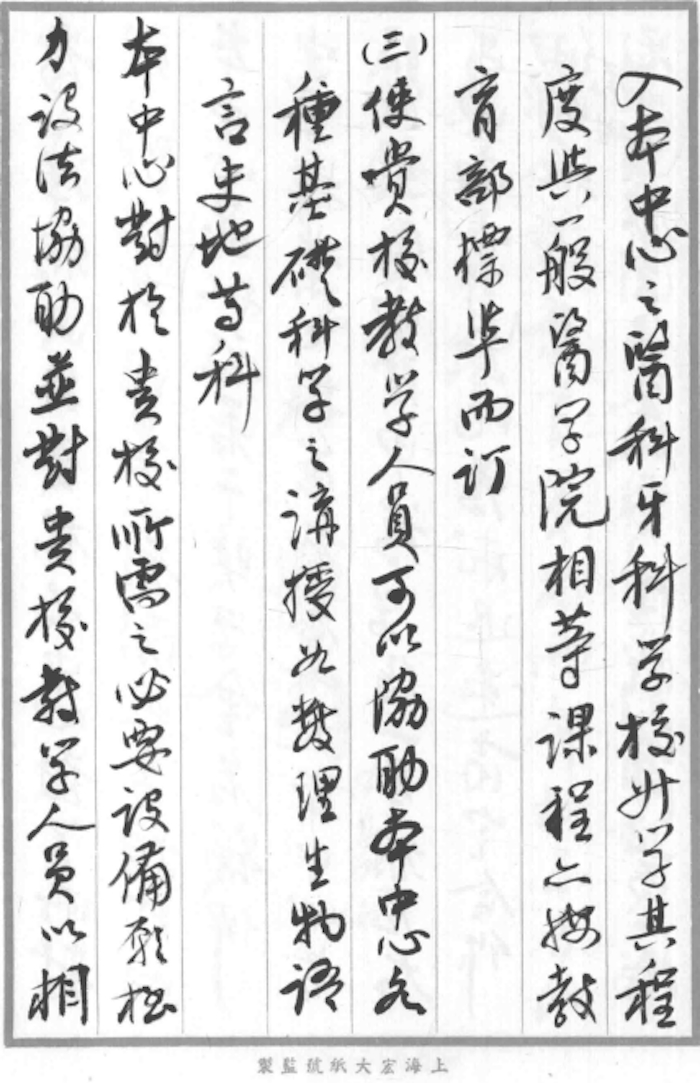 入本中心之醫科牙科学校升学其程
度與一般醫学院相等課程亦按教
育部標準而订
(三)使貴校教学人員可以協助本中心各
種基礎科学之講授如数理生物語
言史地等科
本中心對於貴校所需之必要设備願極
力设法協助並對貴校教学人員以相
上海宏大紙號監製